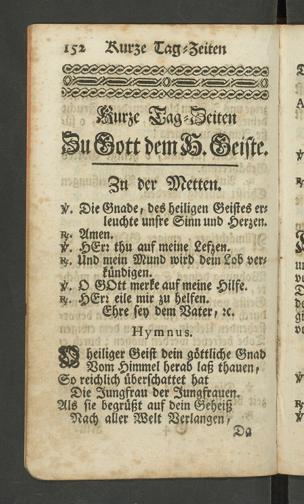 152 Kurze Tag-Zeiten
Kurze Tag-Zeiten
Zu Gott dem H. Geiste.
Zu der Metten.
℣. Die Gnade, des heiligen Geistes er-
leuchte unsre Sinn und Herzen.
℟. Amen.
℣. HErr thu auf meine Lefzen.
℟. Und mein Mund wird dein Lob ver-
kündigen.
℣. O GOtt merke auf meine Hilfe.
℟. HErr eile mir zu helfen.
Ehre sey dem Vater, ꝛc.
Hymnus.
O heiliger Geist dein göttliche Gnad
Vom Himmel herab laß thauen,
So reichlich überschattet hat
Die Jungfrau der Jungfrauen.
Als sie begrüßt auf dein Geheiß
Nach aller Welt Verlangen,
Da